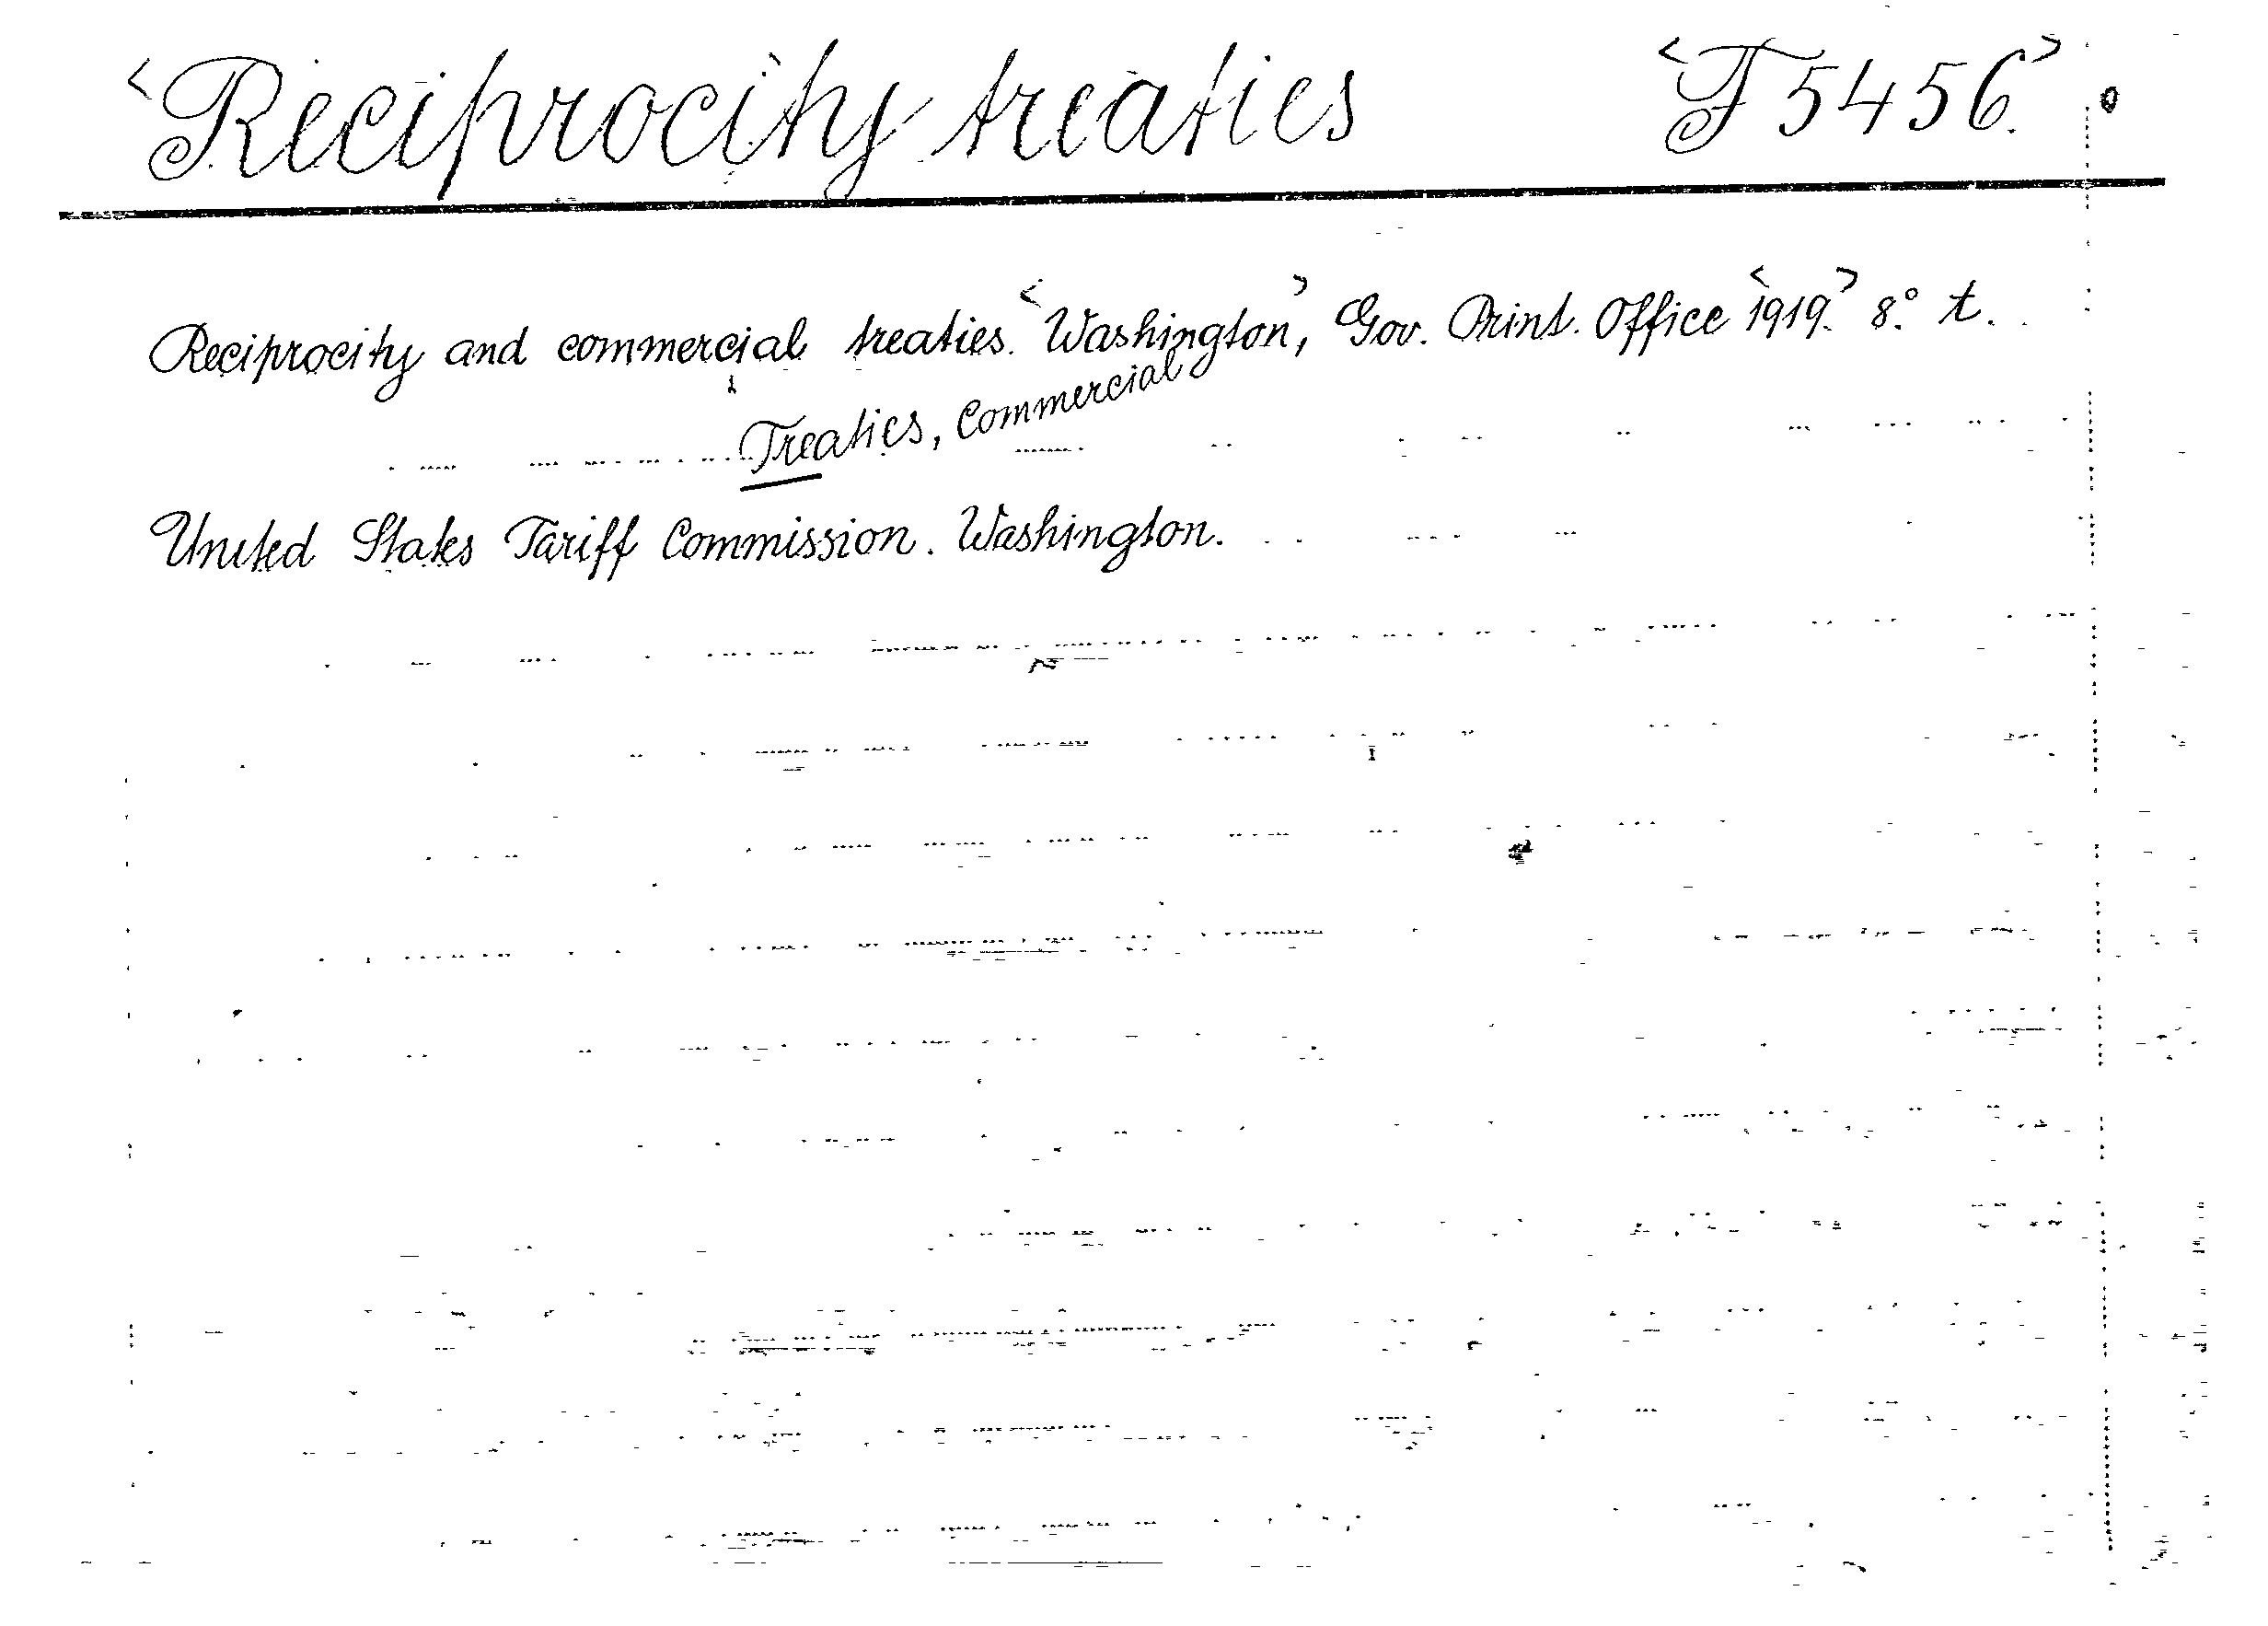 <Reciprocity treaties <F 5456.>
Reciprocity and commercial treaties. <Washington>, Gov. Print. Office <1919.> 8.° t.
Treaties, Commercial
United States Tariff Commission. Washington.